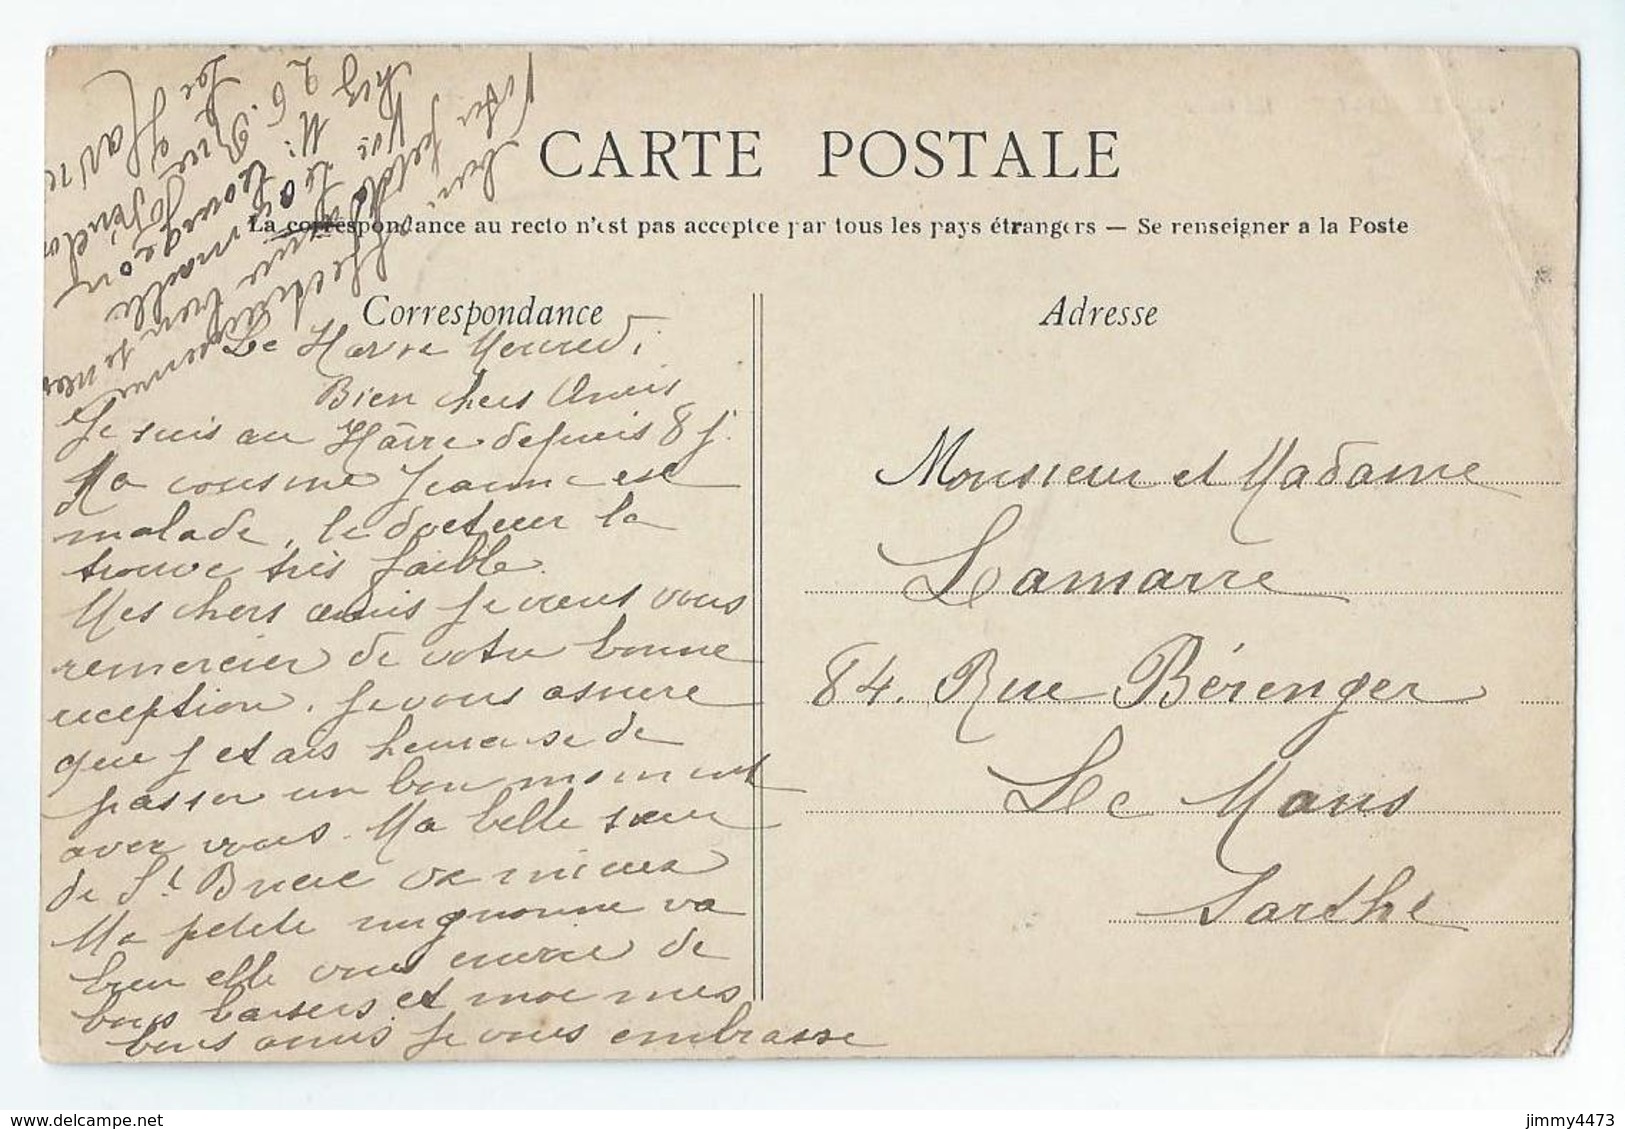 CARTE POSTALE
La correspondance au recto n'est pas acceptée par tous les pays étrangers — Se renseigner a la Poste
Correspondance
Le Havre Mercredi
Bien chers Amis
Je suis au Hâvre depuis 8 j.
Ma cousine Jeanne est
malade, le docteur la
trouve très faible.
Mes chers amis je veux vous
remercier de votre bonne
reception. Je vous assure
que j etais heureuse de
passer un bon moment
avec vous. Ma belle sœur
de St Brieuc va mieux
Ma petite mignonne va
bien elle vous envoie de
bons baisers et moi mes
bons amis je vous embrasse
bien
Votre petite
chez
26. Rue
Le Havre
Adresse
Monsieur et Madame
Lamarre
84. Rue Bérenger
Le Mans
Sarthe
jimmy4473